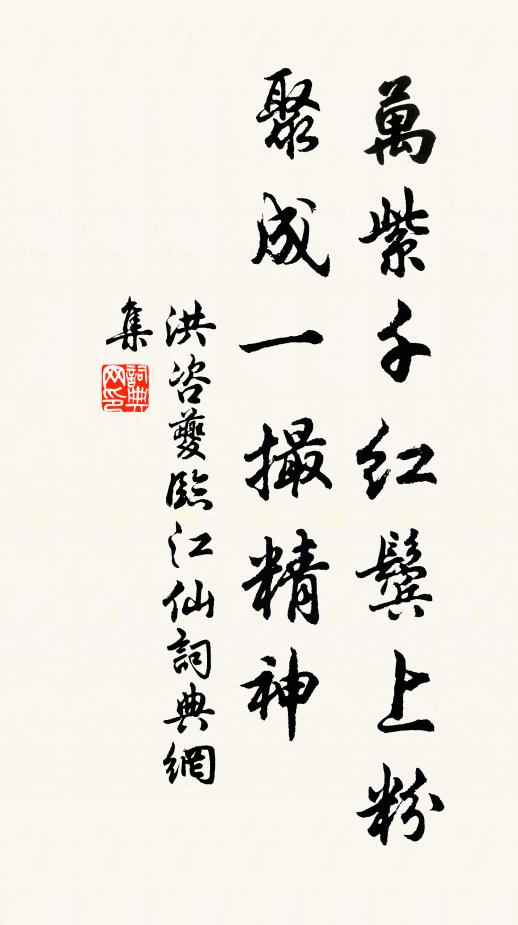 萬紫千红鬓上粉
聚成一撮精神
洪咨夔臨江仙詞典網
集
詞典
网印